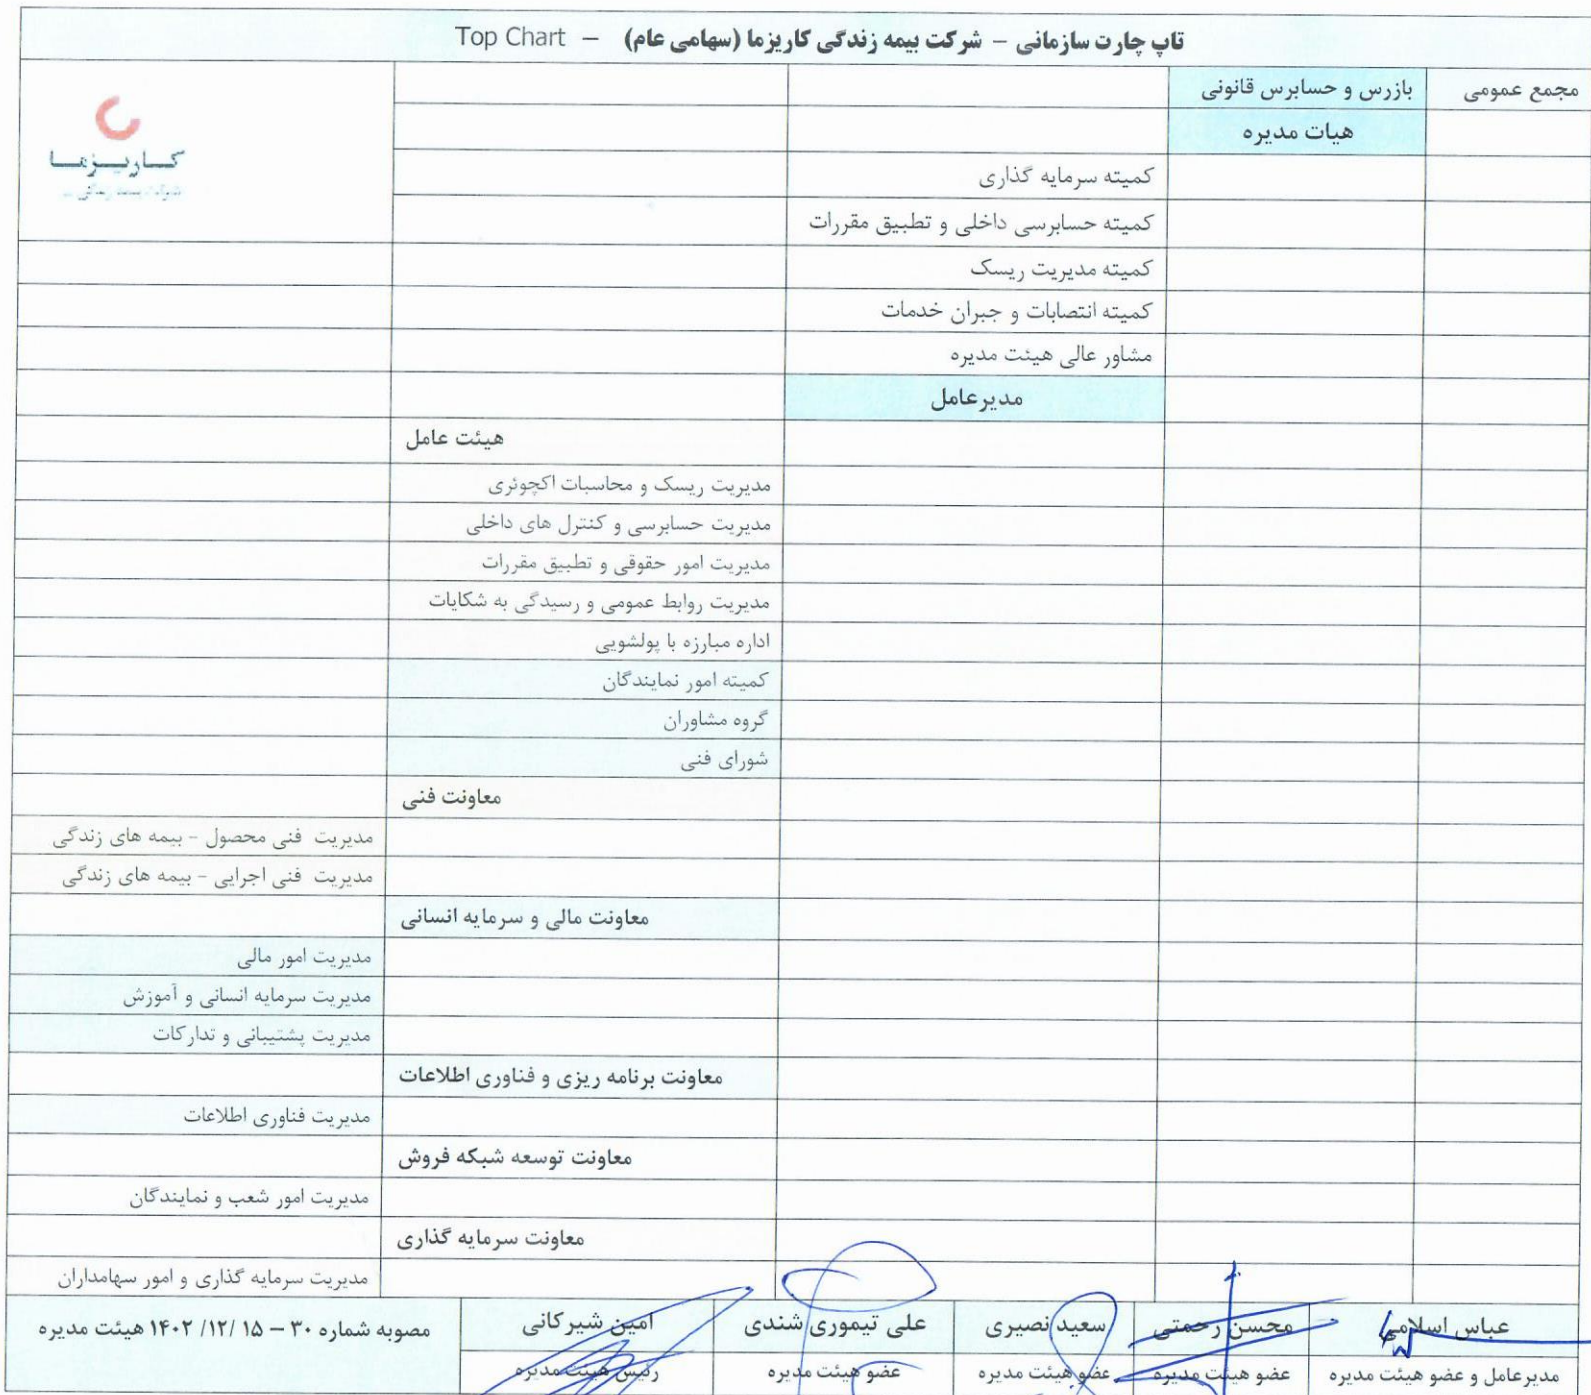 تاپ چارت سازمانی – شرکت بیمه زندگی کاریزما (سهامی عام) – Top Chart
مجمع عمومی
بازرس و حسابرس قانونی
کاریزما
هیات مدیره
کمیته سرمایه گذاری
کمیته حسابرسی داخلی و تطبیق مقررات
کمیته مدیریت ریسک
کمیته انتصابات و جبران خدمات
مشاور عالی هیئت مدیره
مدیرعامل
هیئت عامل
مدیریت ریسک و محاسبات اکچوئری
مدیریت حسابرسی و کنترل های داخلی
مدیریت امور حقوقی و تطبیق مقررات
مدیریت روابط عمومی و رسیدگی به شکایات
اداره مبارزه با پولشویی
کمیته امور نمایندگان
گروه مشاوران
شورای فنی
معاونت فنی
مدیریت فنی محصول - بیمه های زندگی
مدیریت فنی اجرایی - بیمه های زندگی
معاونت مالی و سرمایه انسانی
مدیریت امور مالی
مدیریت سرمایه انسانی و آموزش
مدیریت پشتیبانی و تدارکات
معاونت برنامه ریزی و فناوری اطلاعات
مدیریت فناوری اطلاعات
معاونت توسعه شبکه فروش
مدیریت امور شعب و نمایندگان
معاونت سرمایه گذاری
مدیریت سرمایه گذاری و امور سهامداران
عباس اسلامی
محسن رحمتی
سعید نصیری
علی تیموری شندی
امین شیرکانی
مصوبه شماره ۳۰ – ۱۵ /۱۲/ ۱۴۰۲ هیئت مدیره
مدیرعامل و عضو هیئت مدیره
عضو هیئت مدیره
عضو هیئت مدیره
عضو هیئت مدیره
رئیس هیئت مدیره